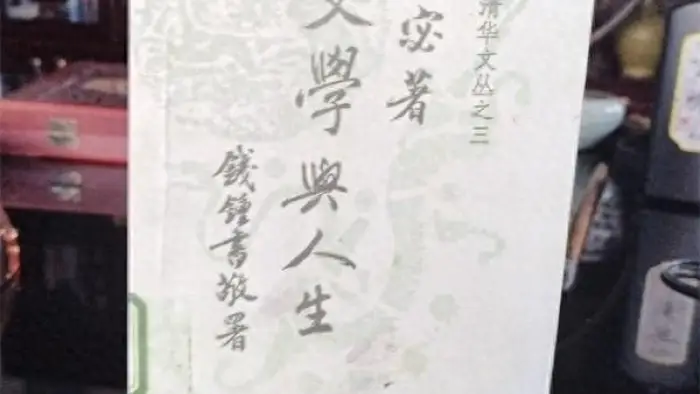 清华文丛之三
宓著
文學與人生
錢鍾書敬署